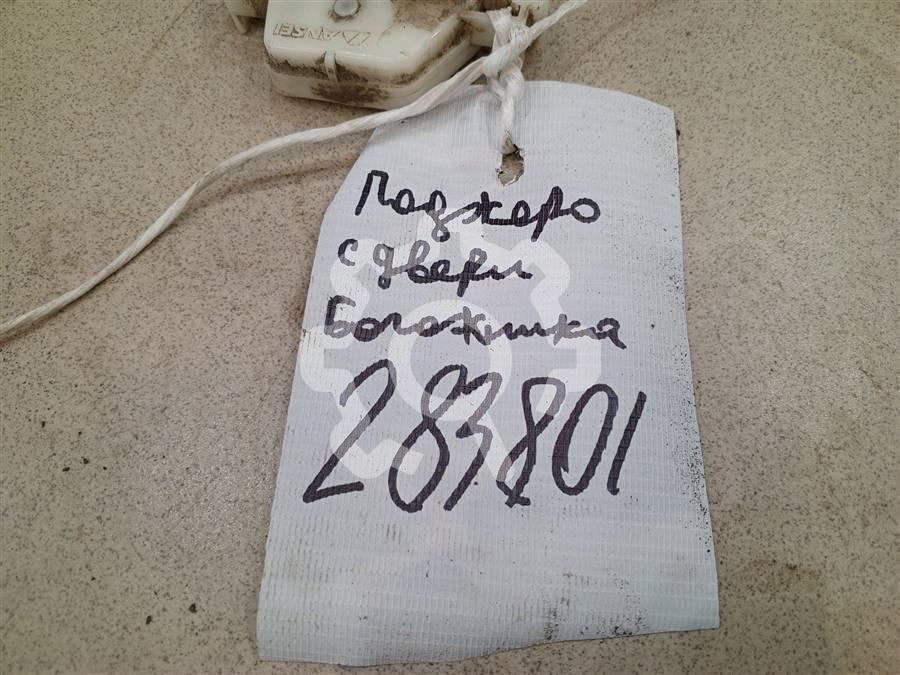 ANSEI
Паджеро
с двери
Богожника
283801